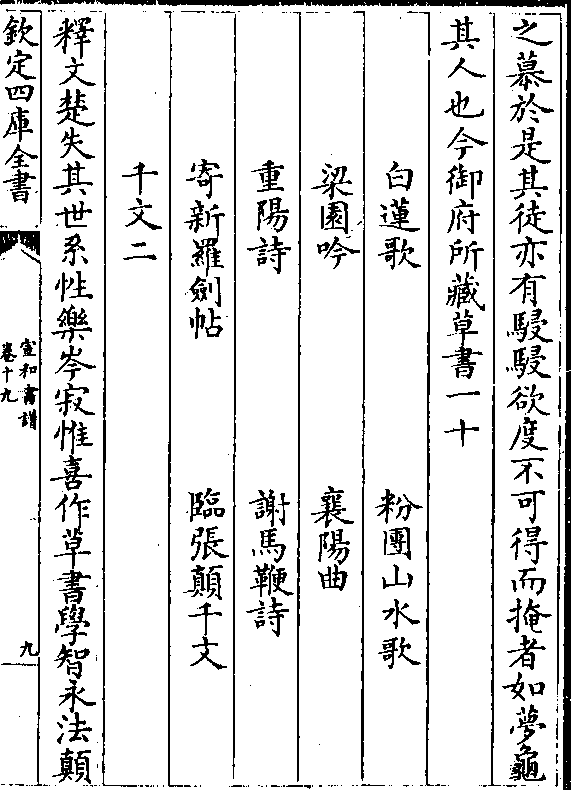 之慕於是其徒亦有駸駸欲度不可得而掩者如夢龜
其人也今御府所藏草書一十
白蓮歌　粉團山水歌
梁園吟　襄陽曲
重陽詩　謝馬鞭詩
寄新羅劍帖　臨張顛千文
千文二
釋文楚失其世系性樂岑寂惟喜作草書學智永法顛
欽定四庫全書
宣和書譜
卷十九
九